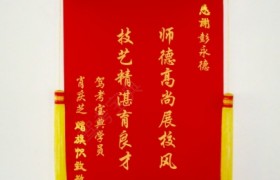 感谢彭永德
师德高尚展校风
技艺精湛育良才
驾考宝典学员
肖获芝